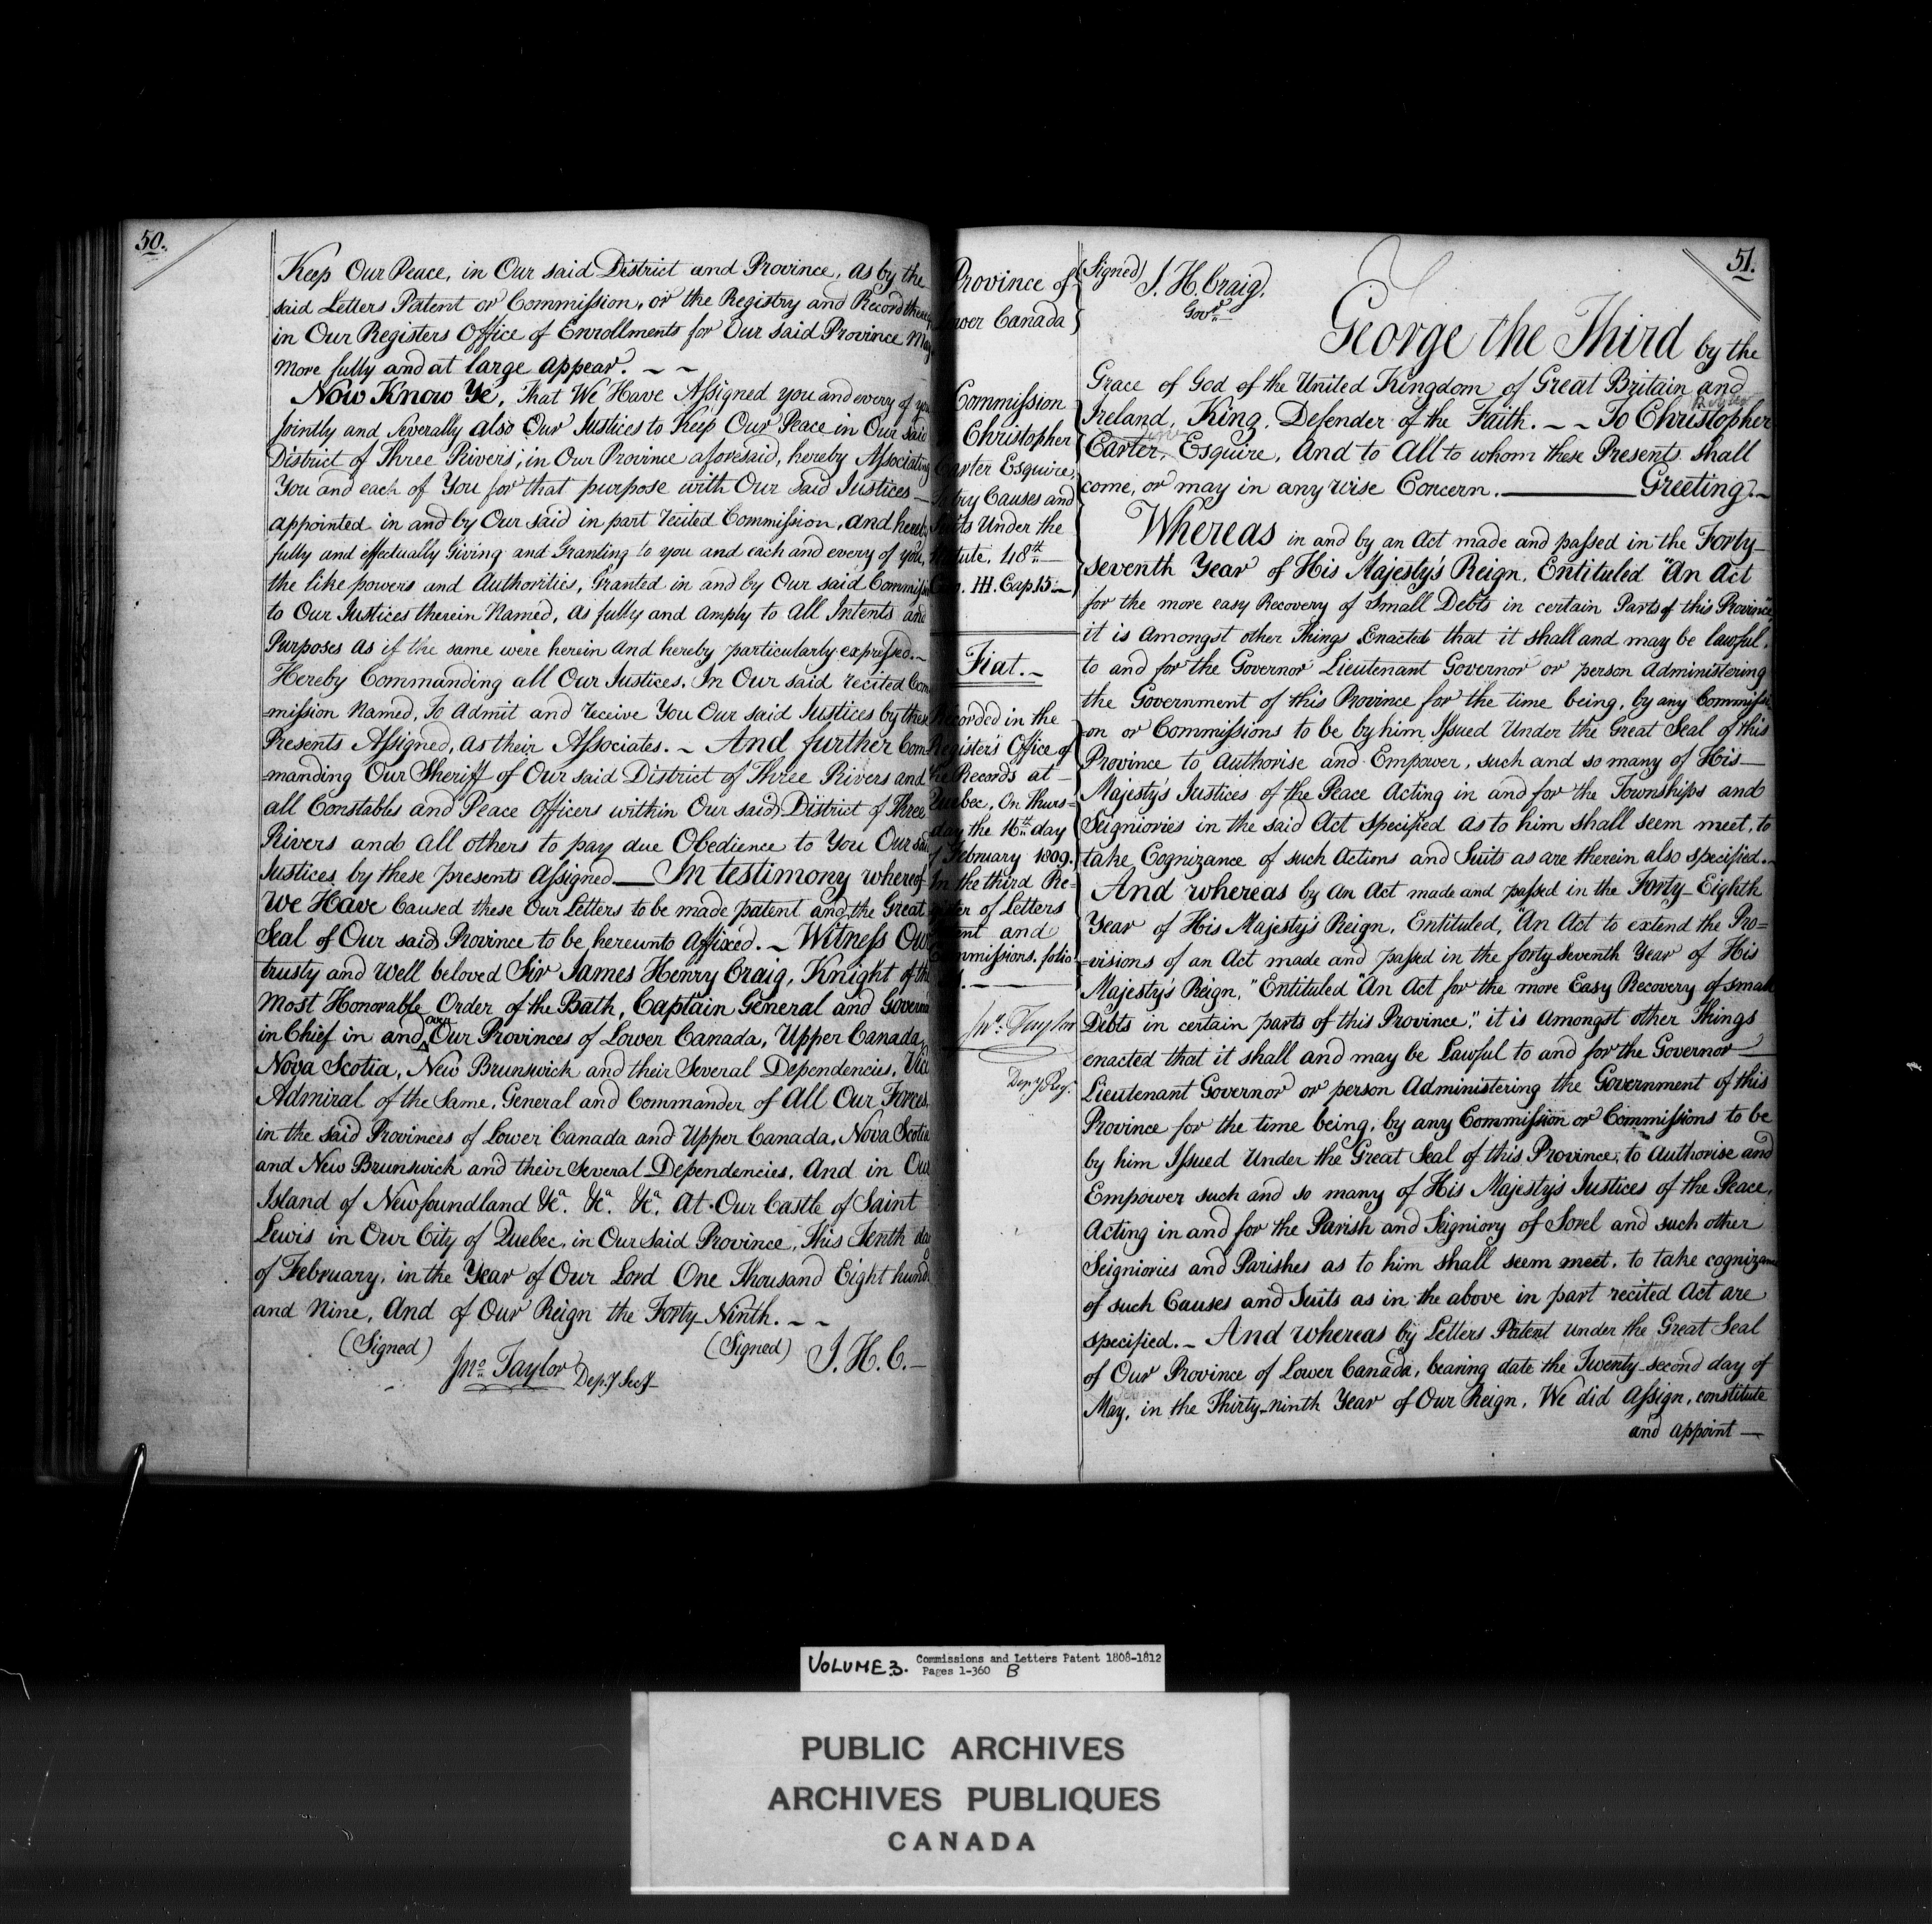 50.
Keep Our Peace, in Our said District and Province, as by the
said Letters Patent or Commission, or the Registry and Record thereof
in Our Registers Office of Enrollments for Our said Province May
more fully and at large appear. ~ ~
Now Know Ye, That We Have Assigned you and every of you
Jointly and Severally also Our Justices to Keep Our Peace in Our said
District of Three Rivers, in Our Province aforesaid, hereby Associating
You and each of You for that purpose with Our said Justices —
appointed in and by Our said in part recited Commission, and hereby
fully and effectually Giving and Granting to you and each and every of you,
the like powers and Authorities, Granted in and by Our said Commission
to Our Justices therein Named, as fully and amply to all Intents and
Purposes as if the same were herein and hereby particularly expressed. ~
Hereby Commanding all Our Justices, In Our said recited Com
=mission Named, To Admit and receive You Our said Justices by these
Presents Assigned, as their Associates. ~ And further Com
=manding Our Sheriff of Our said District of Three Rivers and
all Constables and Peace Officers within Our said District of Three
Rivers and all others to pay due Obedience to You Our said
Justices by these presents assigned — In testimony whereof
We Have Caused these Our Letters to be made patent and the Great
Seal of Our said Province to be hereunto affixed. ~ Witness Our
trusty and well beloved Sir James Henry Craig, Knight of the
Most Honorable Order of the Bath, Captain General and Governor
in Chief in and over Our Provinces of Lower Canada, Upper Canada,
Nova Scotia, New Brunswick and their Several Dependencies, Vice
Admiral of the Same, General and Commander of All Our Forces,
in the said Provinces of Lower Canada and Upper Canada, Nova Scotia
and New Brunswick and their Several Dependencies, And in Our
Island of Newfoundland &ca. &ca. &ca. At Our Castle of Saint
Lewis in Our City of Quebec, in Our said Province, This Tenth day
of February, in the Year of Our Lord One Thousand Eight hund
and Nine, And of Our Reign the Forty-Ninth. ~ ~
(Signed) Jno. Taylor Depy Secy (Signed) J. H. C. —
Province of
Lower Canada
Commission
Christopher
Carter Esquire,
to try Causes and
Suits Under the
Statute, 48th —
Geo. III. Cap 15 —
Fiat. ~
Recorded in the
Register's Office of
the Records at —
Quebec, On Thurs=
day the 16th day
of February 1809.
In the third Re=
gister of Letters
Patent and
Commissions. folio
Jno. Taylor
Depy Regr.
51.
(Signed) J. H. Craig.
Govr.
George the Third by the
Grace of God of the United Kingdom of Great Britain and
Ireland, King, Defender of the Faith. ~ ~ To Christopher
Carter, Esquire, And to All to whom these Presents shall
come, or may in any wise Concern. — Greeting. ~
Whereas in and by an Act made and passed in the Forty-
seventh Year of His Majesty's Reign, Entituled "An Act
for the more easy Recovery of Small Debts in certain Parts of this Province"
it is amongst other Things Enacted that it shall and may be lawful,
to and for the Governor Lieutenant Governor or person Administering
the Government of this Province for the time being, by any Commissi=
=on or Commissions to be by him Issued Under the Great Seal of this
Province to Authorise and Empower, such and so many of His —
Majesty's Justices of the Peace Acting in and for the Townships and
Seigniories in the said Act specified as to him shall seem meet, to
take Cognizance of such Actions and Suits as are therein also specified. ~
And whereas by an Act made and passed in the Forty-Eighth
Year of His Majesty's Reign, Entituled, "An Act to extend the Pro=
=visions of an Act made and passed in the forty-seventh Year of His
Majesty's Reign," Entituled "An Act for the more Easy Recovery of small
Debts in certain parts of this Province," it is amongst other Things
enacted that it shall and may be Lawful to and for the Governor —
Lieutenant Governor or person Administering the Government of this
Province for the time being, by any Commission or Commissions to be
by him Issued Under the Great Seal of this Province, to Authorise and
Empower such and so many of His Majesty's Justices of the Peace,
Acting in and for the Parish and Seigniory of Sorel and such other
Seigniories and Parishes as to him shall seem meet, to take cognizance
of such Causes and Suits as in the above in part recited Act are
specified. ~ And whereas by Letters Patent under the Great Seal
of Our Province of Lower Canada, bearing date the Twenty-second day of
May, in the Thirty-ninth Year of Our Reign, We did Assign, constitute
and appoint —
VOLUME 3. Commissions and Letters Patent 1808-1812
Pages 1-360 B
PUBLIC ARCHIVES
ARCHIVES PUBLIQUES
CANADA